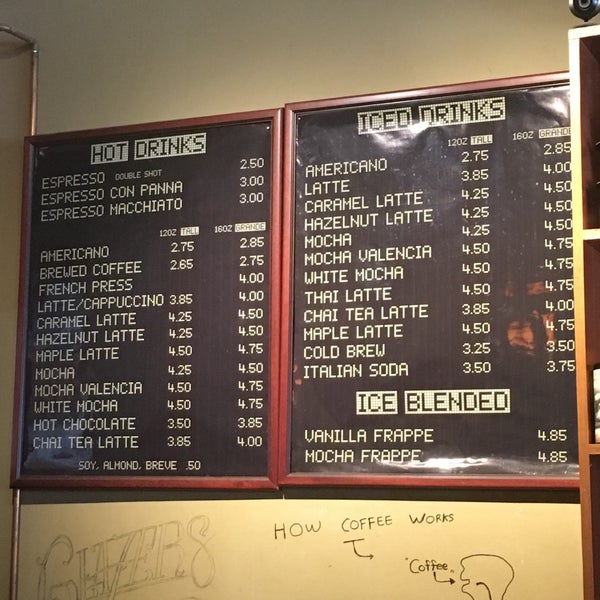 HOT DRINKS
ESPRESSO DOUBLE SHOT 2.50
ESPRESSO CON PANNA 3.00
ESPRESSO MACCHIATO 3.00
12OZ TALL 16OZ GRANDE
AMERICANO 2.75 2.85
BREWED COFFEE 2.65 2.75
FRENCH PRESS 4.00
LATTE/CAPPUCCINO 3.85 4.00
CARAMEL LATTE 4.25 4.50
HAZELNUT LATTE 4.25 4.50
MAPLE LATTE 4.50 4.75
MOCHA 4.25 4.50
MOCHA VALENCIA 4.50 4.75
WHITE MOCHA 4.50 4.75
HOT CHOCOLATE 3.50 3.85
CHAI TEA LATTE 3.85 4.00
SOY, ALMOND, BREVE .50
ICED DRINKS
12OZ TALL 16OZ GRANDE
AMERICANO 2.75 2.85
LATTE 3.85 4.00
CARAMEL LATTE 4.25 4.50
HAZELNUT LATTE 4.25 4.50
MOCHA 4.25 4.50
MOCHA VALENCIA 4.50 4.75
WHITE MOCHA 4.50 4.75
THAI LATTE 4.50 4.75
CHAI TEA LATTE 3.85 4.00
MAPLE LATTE 4.50 4.75
COLD BREW 3.25 3.50
ITALIAN SODA 3.50 3.75
ICE BLENDED
VANILLA FRAPPE 4.85
MOCHA FRAPPE 4.85
HOW COFFEE WORKS
"Coffee"